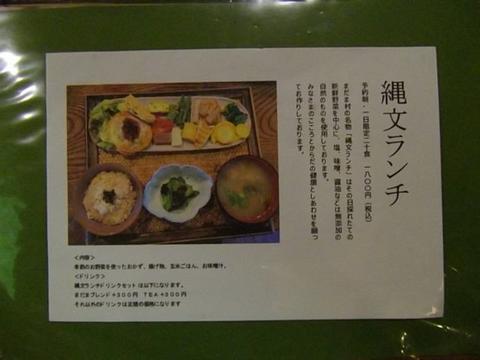 縄文ランチ
予約制・一日限定二十食 一八〇〇円（税込）
まだま村の名物「縄文ランチ」はその日採れたての
新鮮野菜を中心に、塩、味噌、醤油などは無添加の
自然のものを使用しております。
みなさまのこころとからだの健康としあわせを願っ
てお作りしております。
＜内容＞
季節のお野菜を使ったおかず、揚げ物、玄米ごはん、お味噌汁。
＜ドリンク＞
縄文ランチドリンクセットは以下になります。
まだまブレンド+300円 TEA+300円
それ以外のドリンクは正規の価格になります